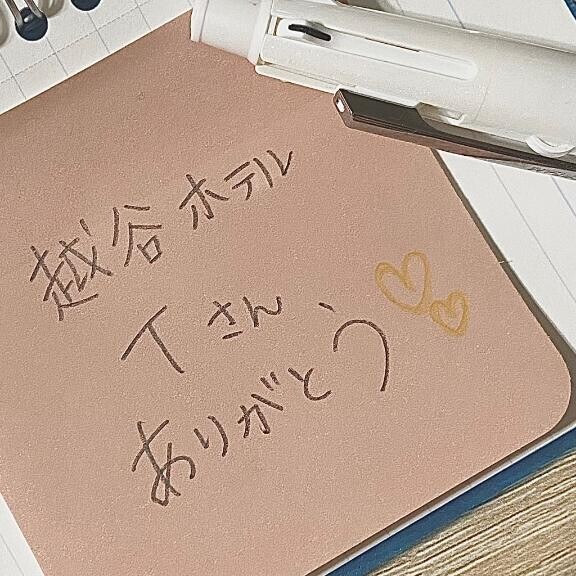 越谷ホテル
Tさん、
ありがとう